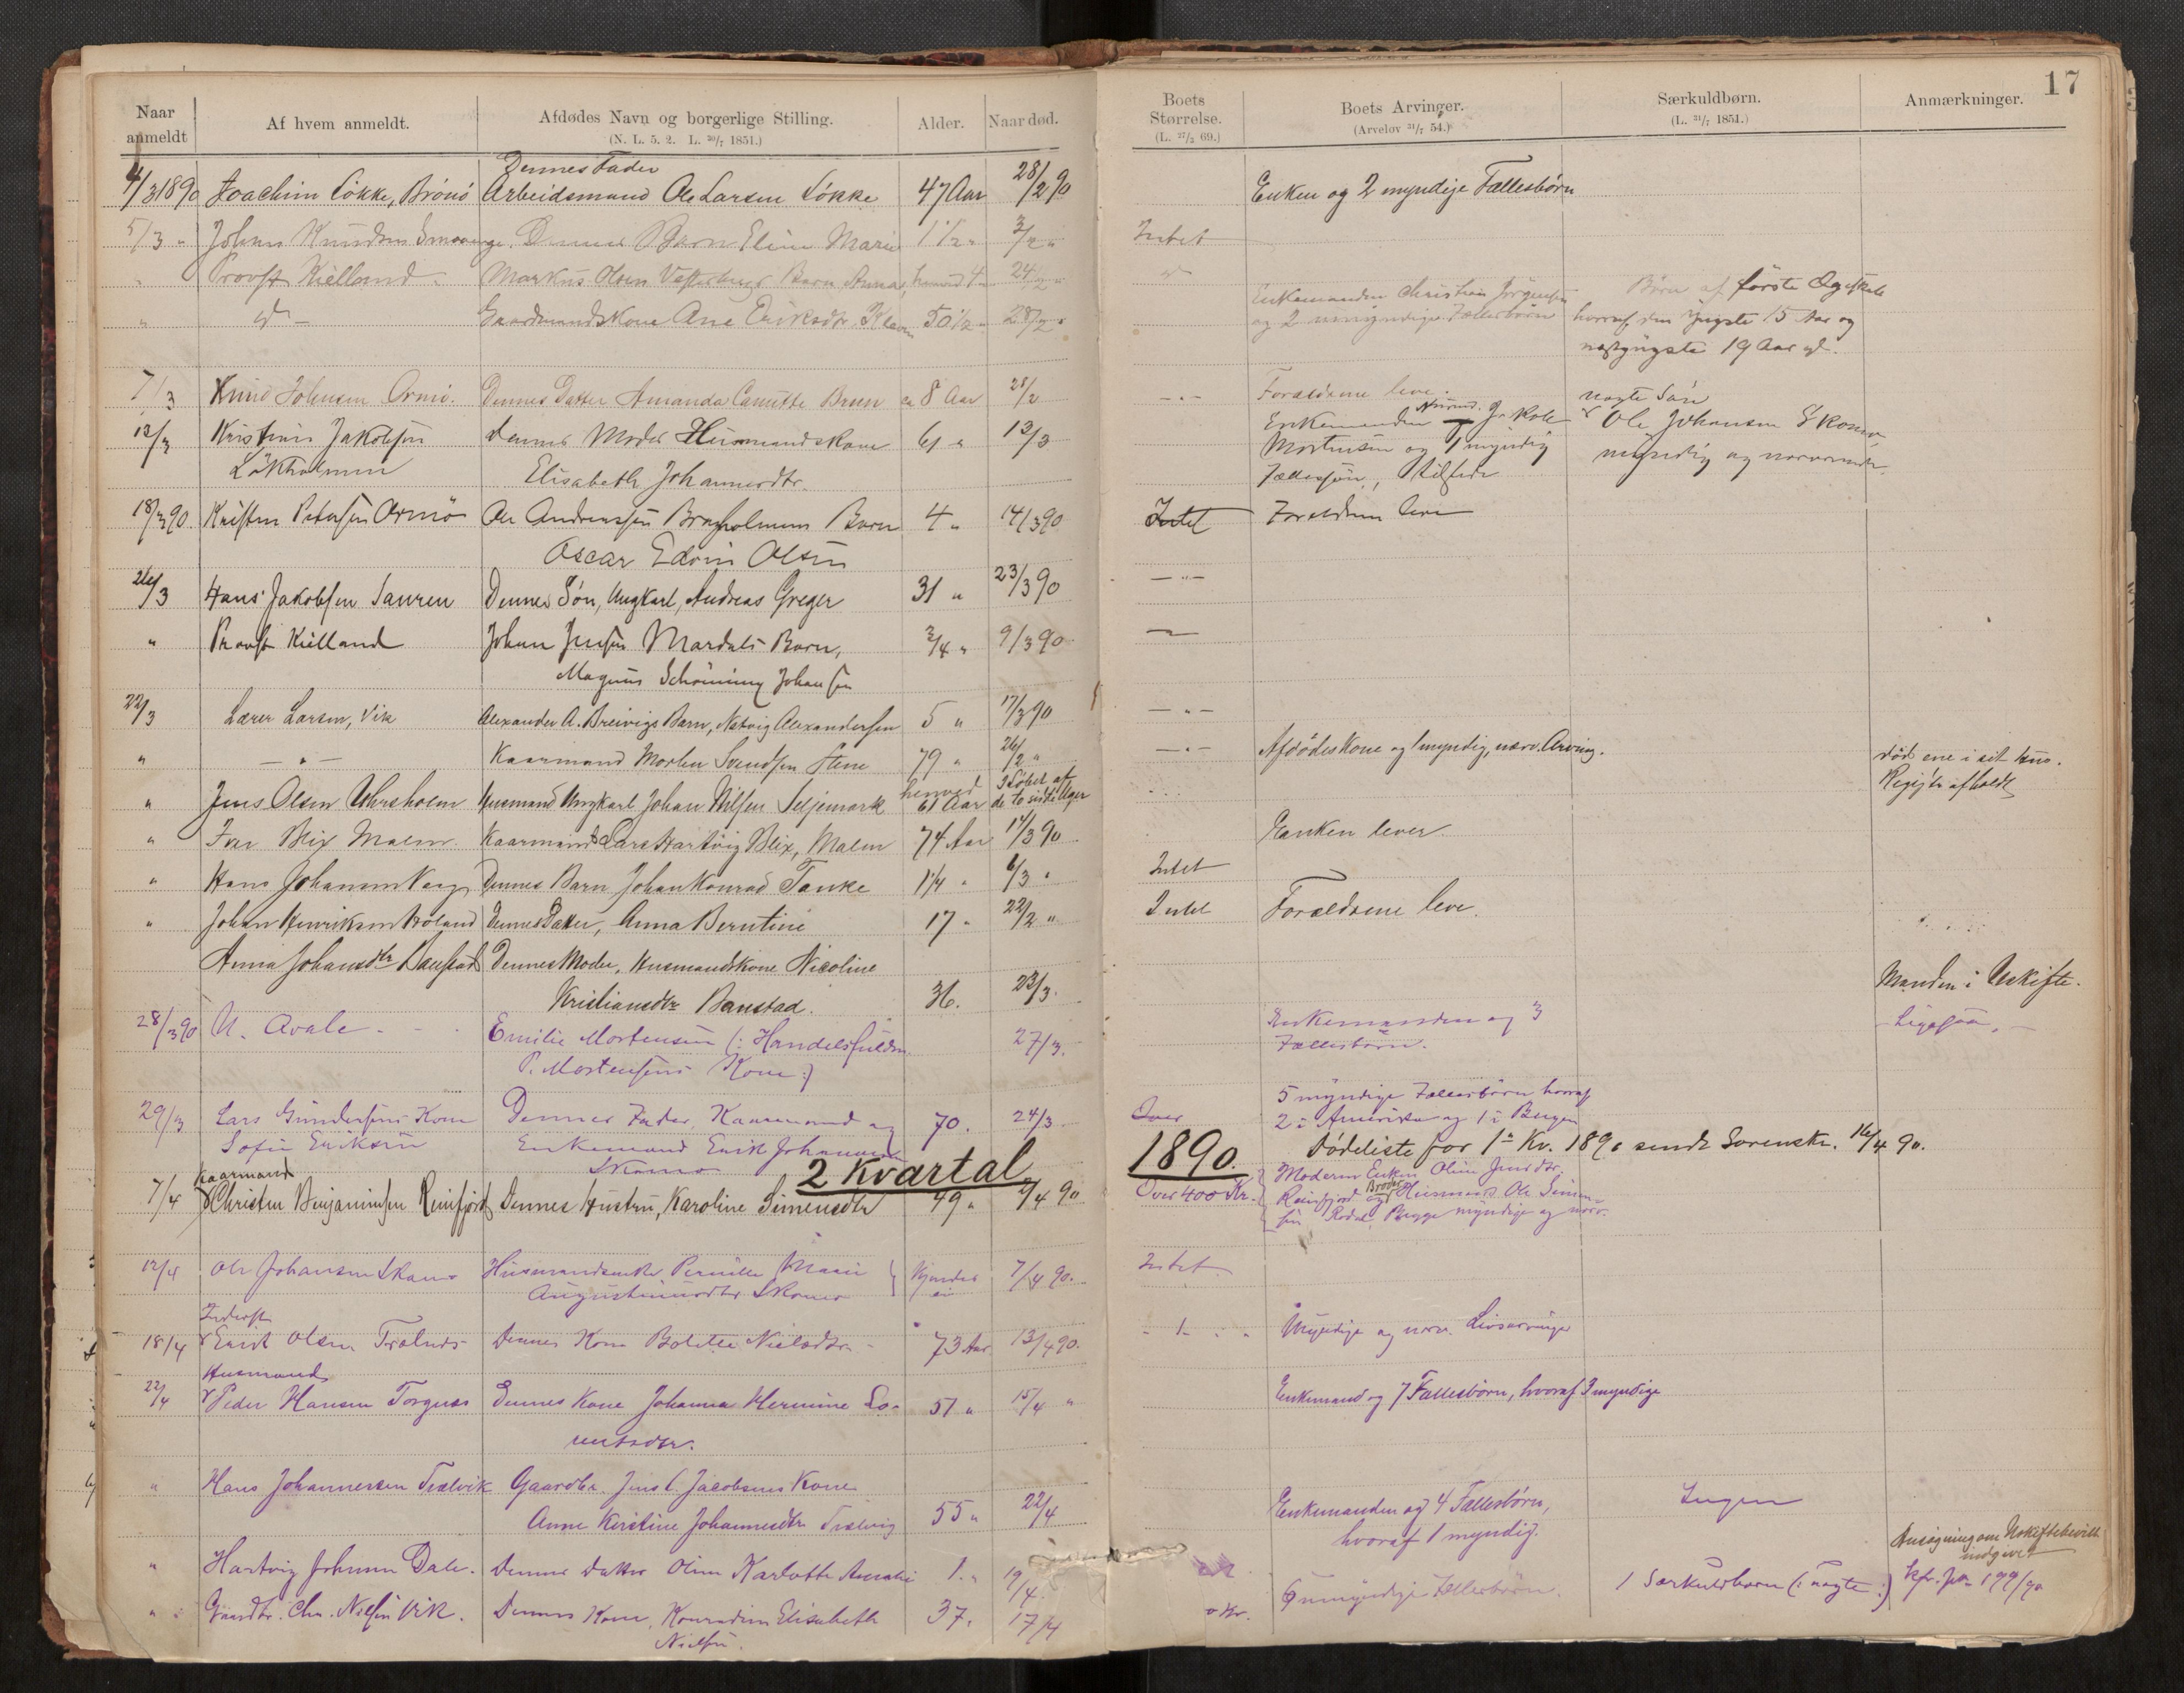 17
Naar anmeldt
Af hvem anmeldt.
Afdødes Navn og borgerlige Stilling.
(N. L. 5. 2. L. 30/7 1851.)
Alder.
Naar død.
Boets Størrelse.
(L. 27/3 69.)
Boets Arvinger.
(Arvelov 31/7 54.)
Særkuldbørn.
(L. 31/7 1851.)
Anmærkninger.
Dennes Fader
4/3 1890 Joachim Løkke, Brønø Arbeidsmand Ole Larsen Løkke 47 Aar 28/2 90 Enken og 2 myndige Fællesbørn
5/3 " Johan Knudsen Dennes Barn Eline Marie 1 1/2 " Intet
" Provst Kielland Markus Olsen Barn Anna 4 24/2 "
" Gaardmandskone Ane Eriksdtr. 50 1/2 " 28/2 " Enkemanden Christian Jørgensen Børn af første Ægteskab
og 2 umyndige Fællesbørn hvoraf den yngste 15 Aar og
næstyngste 19 Aar gl.
7/3 Knud Johnsen Ormø. Dennes Datter Amanda Camitta Brun ca 8 Aar 28/2 Forældrene leve. uægte Søn
12/3 Kristian Jakobsen Dennes Moder Husmandskone 61 " 12/3 Enkemanden Jakob Ole Johansen Skomo,
Løkholmen Elisabeth Johannesdtr. Mortensen og 1 myndig myndig og nærværende.
Fællessøn, tilstede
18/3 90 Kristen Petersen Ormø Ole Andreassen Brasholmens Barn 4 " 14/3 90 Intet Forældrene leve
Oscar Edvin Olsen
26/3 Hans Jakobsen Sauren Dennes Søn, Ungkarl, Andreas Greger 31 " 23/3 90 — " —
" Provst Kielland Johan Jensen Mardals Barn, 3/4 " 9/3 90
Magnus Schønning Johansen
22/3 Lærer Larsen, Vik Alexander A. Breivigs Barn, Natvig Alexandersen 5 " 17/3 90 — " —
" — " — Kaarmand Morten Svendsen Stene 79 " 26/2 " — " — Afdødes Kone og 1 myndig, nærv. Arving.
død ene i sit huus.
" Jens Olsen Uhrsholm Husmand Ungkarl Johan Nilsen Seljemark henved 61 Aar I Løbet af de to sidste Uger Registr. afholdt
" Ivar Blix Malm. Kaarmand Lars Hartvig Blix, Malm 74 Aar 14/3 90 Enken lever.
" Hans Johansen Dennes Barn Johan Konrad Tanke 1 1/4 " 6/3 " Intet
" Johan Henriksen Dennes Datter, Anna Berntine 17 " 22/2 " Intet Forældrene leve.
Anna Johansdtr Banstad Dennes Moder, Husmandskone Nicoline
Kristiansdtr Banstad. 36. 23/3. Manden i Uskifte.
28/3 90 Emilie Mortensen (: Handelsfuldm. 27/3. Enkemanden og 3
P. Mortensens Kone :) Fællesbørn. Ligesaa.
29/3 Lars Gundersens Kone Dennes Fader, Kaarmand og 70. 24/3 Over 5 myndige Fællesbørn hvoraf
Sofie Eriksen Enkemand Erik Johannesen 2 i Amerika og 1 i Bergen
Skomo
2 Kvartal 1890. Dødsliste for 1ste Kv. 1890 sendt Sorenskr. 16/4 90.
Kaarmand
7/4 Christen Benjaminsen Reinfjord Dennes Hustru, Karoline Simensdtr 49 " 2/4 90 Over 400 Kr. Moderen Enken Oline Jensdtr.
Reinfjord og Broder Husmand Ole Simen-
sen Rodal. Begge myndige og nærv.
12/4 Ole Johansen Skomo Husmandsenke Pernille Marie 7/4 90. Intet.
Augustinusdtr Skomo
18/4 Erik Olsen Dennes Kone Bolette Nielsdtr. 73 Aar 13/4 90. Myndige og nærv. Livsarvinger
Husmand
22/4 Peder Hansen Torgnes Dennes Kone Johanna Hermine Lo- 51 " 15/4 " Enkemand og 7 Fællesbørn, hvoraf 3 myndige
rentsdtr.
" Hans Johannesen Trælvik Gaardbr. Jens C. Jacobsens Kone
Anne Kirstine Johannesdtr Trælvig 55 " 22/4 Enkemanden og 4 Fællesbørn, Ingen
hvoraf 1 myndig.
Ansøgning om Uskiftebevill. indgivet
" Hartvig Johnsen Dale. Dennes Datter Oline Karlotte Amalie 1. " 19/4
" Gaardbr. Chr. Nielsen Vik. Dennes Kone, Konradine Elisabeth 37. 17/4 6 umyndige Fællesbørn. 1 Særkuldbarn (: uægte :) kfr. 199/90
Nielsen.